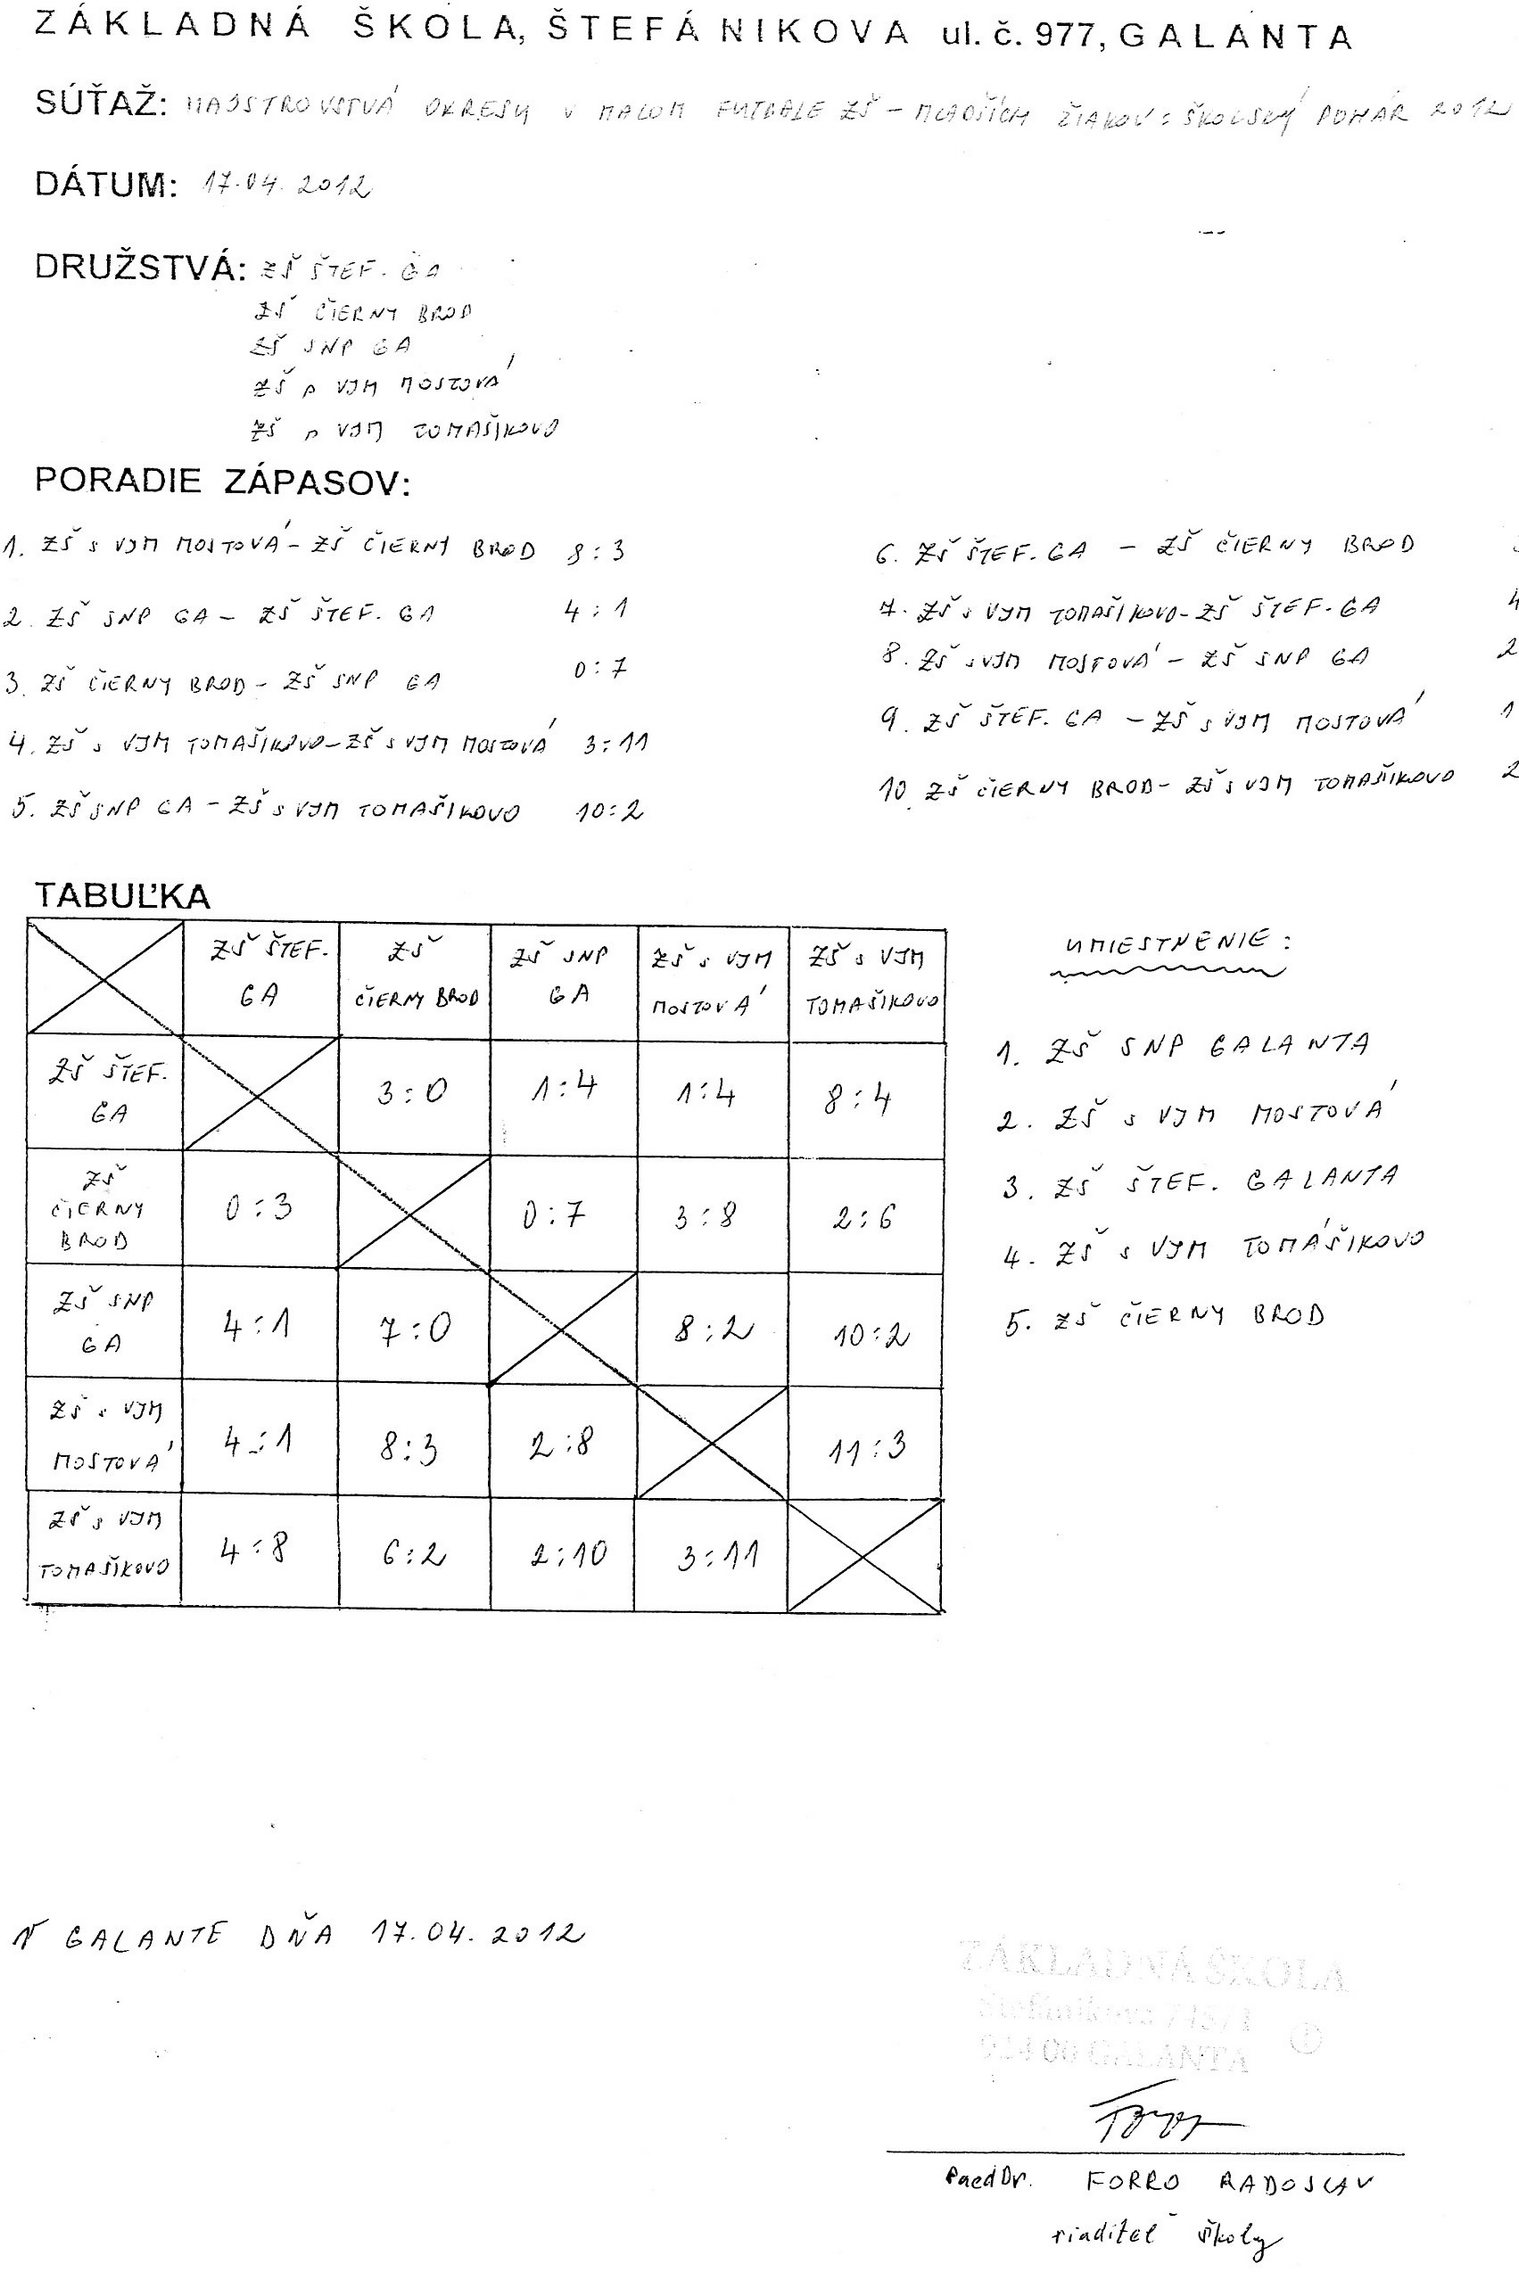 ZÁKLADNÁ ŠKOLA, ŠTEFÁNIKOVA ul. č. 977, GALANTA
SÚŤAŽ: MAJSTROVSTVÁ OKRESU V MALOM FUTBALE ZŠ - MLADŠÍCH ŽIAKOV: ŠKOLSKÝ POHÁR 2012
DÁTUM: 17.04.2012
DRUŽSTVÁ: ZŠ ŠTEF. GA
ZŠ ČIERNY BROD
ZŠ SNP GA
ZŠ s VJM MOSTOVÁ
ZŠ s VJM TOMAŠIKOVO
PORADIE ZÁPASOV:
1. ZŠ s VJM MOSTOVÁ - ZŠ ČIERNY BROD 8:3
2. ZŠ SNP GA - ZŠ ŠTEF. GA 4:1
3. ZŠ ČIERNY BROD - ZŠ SNP GA 0:7
4. ZŠ s VJM TOMAŠIKOVO - ZŠ s VJM MOSTOVÁ 3:11
5. ZŠ SNP GA - ZŠ s VJM TOMAŠIKOVO 10:2
6. ZŠ ŠTEF. GA - ZŠ ČIERNY BROD
7. ZŠ s VJM TOMAŠIKOVO - ZŠ ŠTEF. GA 4
8. ZŠ s VJM MOSTOVÁ - ZŠ SNP GA 2
9. ZŠ ŠTEF. GA - ZŠ s VJM MOSTOVÁ 1
10 ZŠ ČIERNY BROD - ZŠ s VJM TOMAŠIKOVO 2
TABUĽKA
ZŠ ŠTEF. GA ZŠ ČIERNY BROD ZŠ SNP GA ZŠ s VJM MOSTOVÁ ZŠ s VJM TOMAŠIKOVO
ZŠ ŠTEF. GA 3:0 1:4 1:4 8:4
ZŠ ČIERNY BROD 0:3 0:7 3:8 2:6
ZŠ SNP GA 4:1 7:0 8:2 10:2
ZŠ s VJM MOSTOVÁ 4:1 8:3 2:8 11:3
ZŠ s VJM TOMAŠIKOVO 4:8 6:2 2:10 3:11
UMIESTNENIE:
1. ZŠ SNP GALANTA
2. ZŠ s VJM MOSTOVÁ
3. ZŠ ŠTEF. GALANTA
4. ZŠ s VJM TOMÁŠIKOVO
5. ZŠ ČIERNY BROD
V GALANTE DŇA 17.04.2012
ZÁKLADNÁ ŠKOLA
Štefánikova
924 00 GALANTA
PaedDr. FORRO RADOSLAV
riaditeľ školy